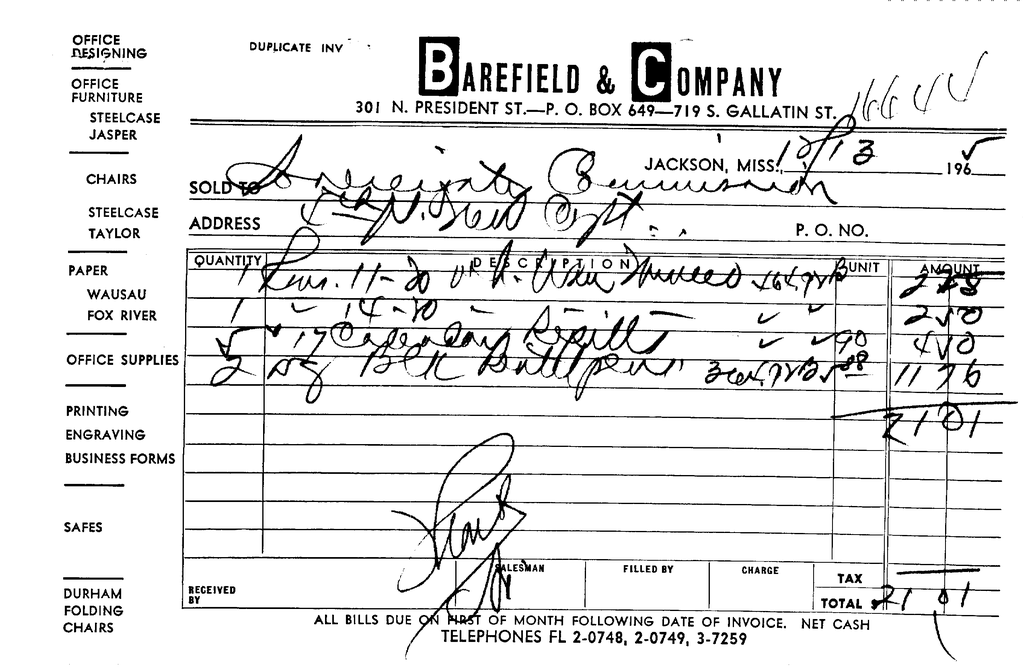 OFFICE
DESIGNING
OFFICE
FURNITURE
STEELCASE
JASPER
CHAIRS
STEELCASE
TAYLOR
PAPER
WAUSAU
FOX RIVER
OFFICE SUPPLIES
PRINTING
ENGRAVING
BUSINESS FORMS
SAFES
DURHAM
FOLDING
CHAIRS
DUPLICATE INV
BAREFIELD & COMPANY
301 N. PRESIDENT ST.—P. O. BOX 649—719 S. GALLATIN ST.
16644
JACKSON, MISS. 12/13 1965
SOLD TO Sovereignty Commission
ADDRESS New Cpt. P. O. NO.
QUANTITY DESCRIPTION UNIT AMOUNT
1 11-20
1 14-20 250
5 17 Calendar Refills 90 450
2 dz Blk Ball pens 588 11 76
21 01
RECEIVED BY SALESMAN FILLED BY CHARGE TAX
TOTAL $ 21 01
ALL BILLS DUE ON FIRST OF MONTH FOLLOWING DATE OF INVOICE. NET CASH
TELEPHONES FL 2-0748, 2-0749, 3-7259